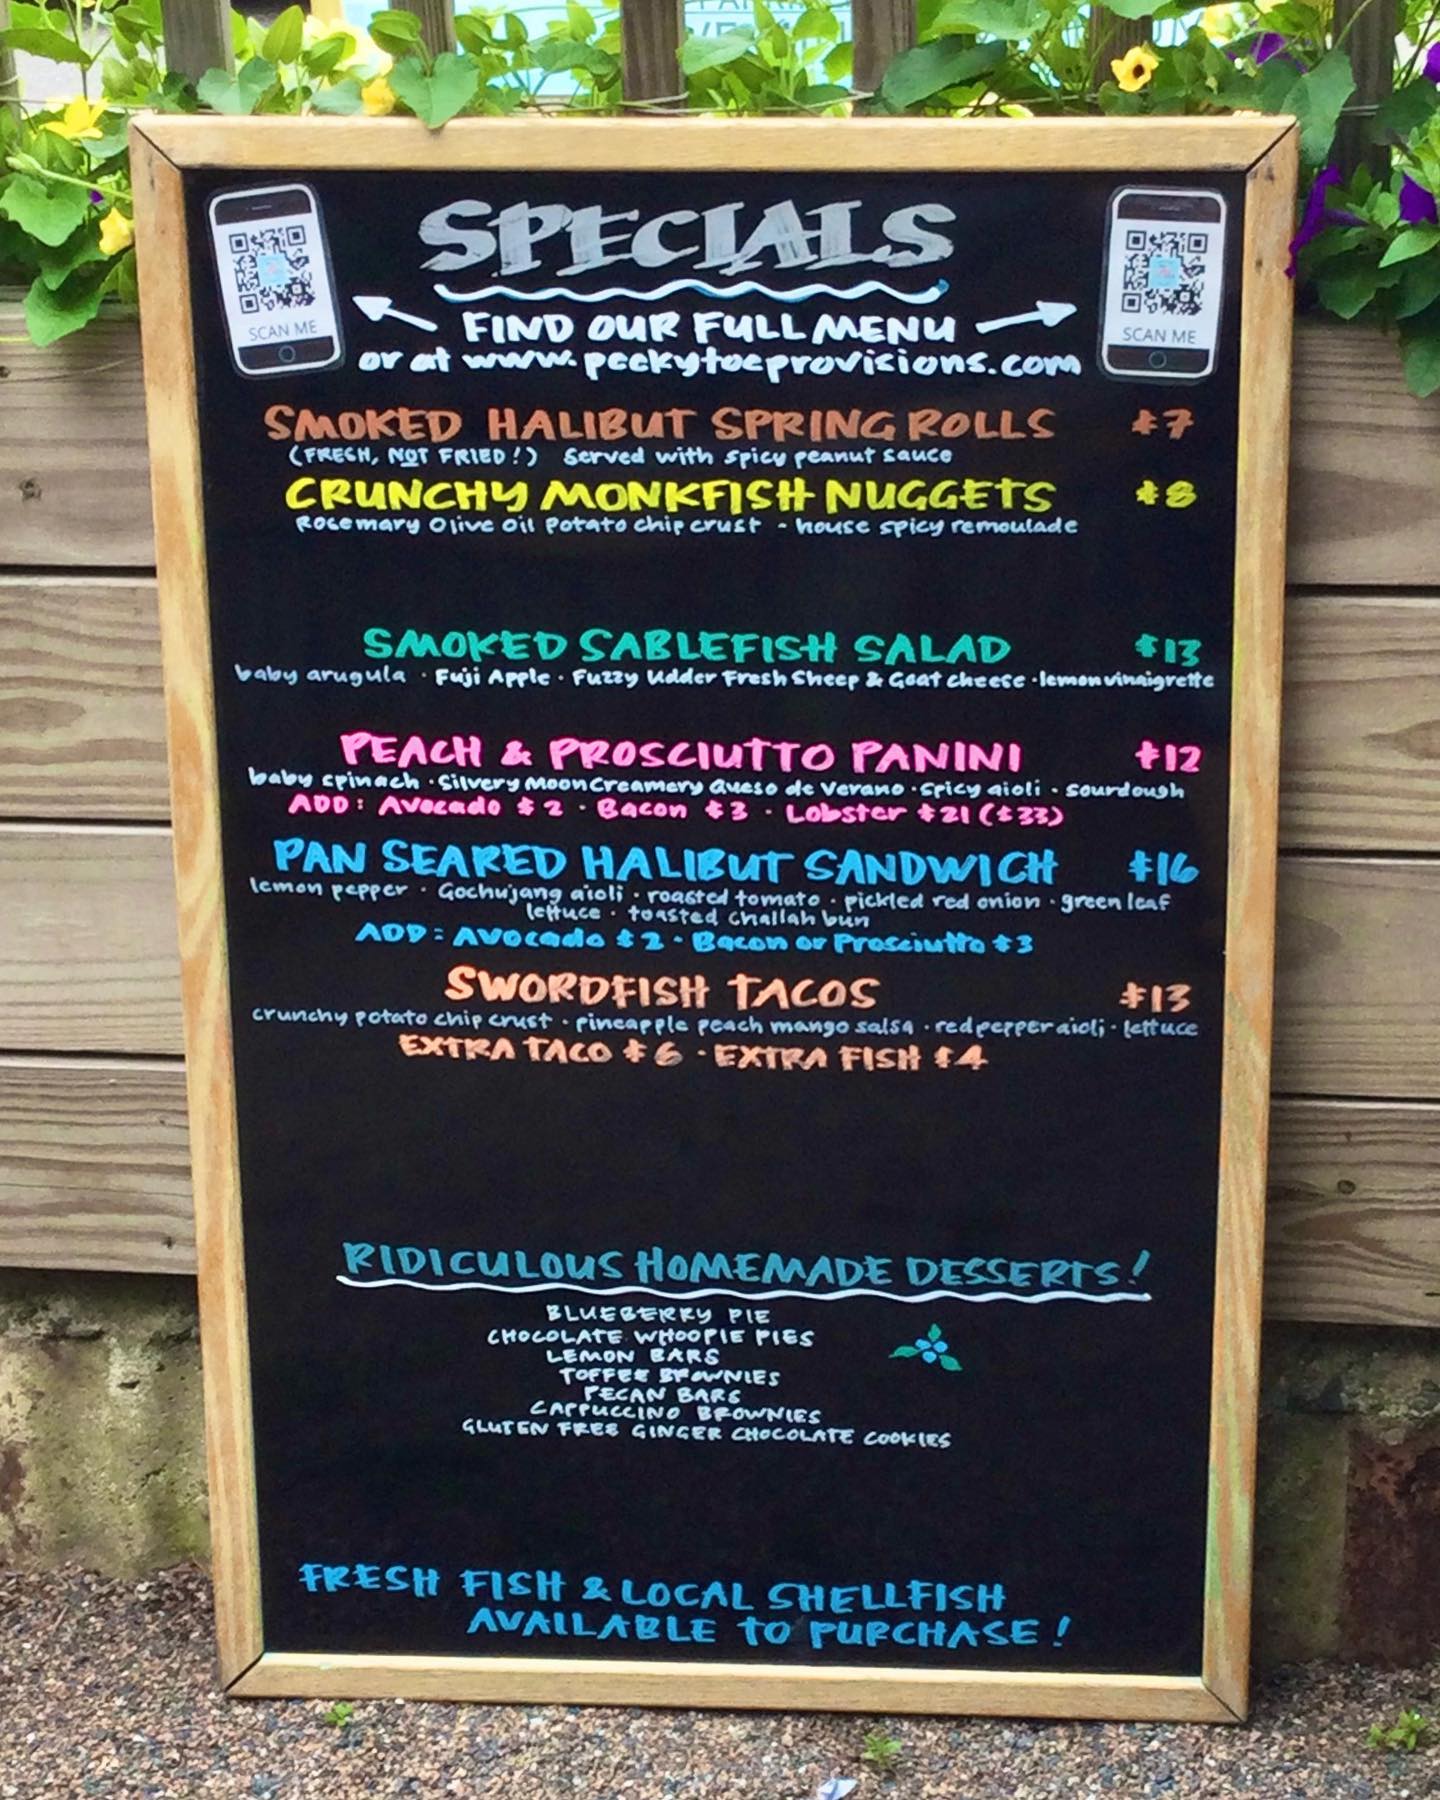 SPECIALS
SCAN ME
SCAN ME
FIND OUR FULL MENU
or at www.peekytoeprovisions.com
SMOKED HALIBUT SPRING ROLLS $7
(FRESH, NOT FRIED!) Served with spicy peanut sauce
CRUNCHY MONKFISH NUGGETS $8
Rosemary Olive Oil Potato chip crust - house spicy remoulade
SMOKED SABLEFISH SALAD $13
baby arugula · Fuji Apple · Fuzzy Udder Fresh Sheep & Goat cheese · lemon vinaigrette
PEACH & PROSCIUTTO PANINI $12
baby spinach · Silvery Moon Creamery Queso de Verano · spicy aioli · sourdough
ADD: Avocado $2 · Bacon $3 · Lobster $21 ($33)
PAN SEARED HALIBUT SANDWICH $16
lemon pepper · Gochujang aioli · roasted tomato · pickled red onion · green leaf
lettuce · toasted challah bun
ADD: Avocado $2 · Bacon or Prosciutto $3
SWORDFISH TACOS $13
crunchy potato chip crust · pineapple peach mango salsa · red pepper aioli · lettuce
EXTRA TACO $6 · EXTRA FISH $4
RIDICULOUS HOMEMADE DESSERTS!
BLUEBERRY PIE
CHOCOLATE WHOOPIE PIES
LEMON BARS
TOFFEE BROWNIES
PECAN BARS
CAPPUCCINO BROWNIES
GLUTEN FREE GINGER CHOCOLATE COOKIES
FRESH FISH & LOCAL SHELLFISH
AVAILABLE TO PURCHASE!